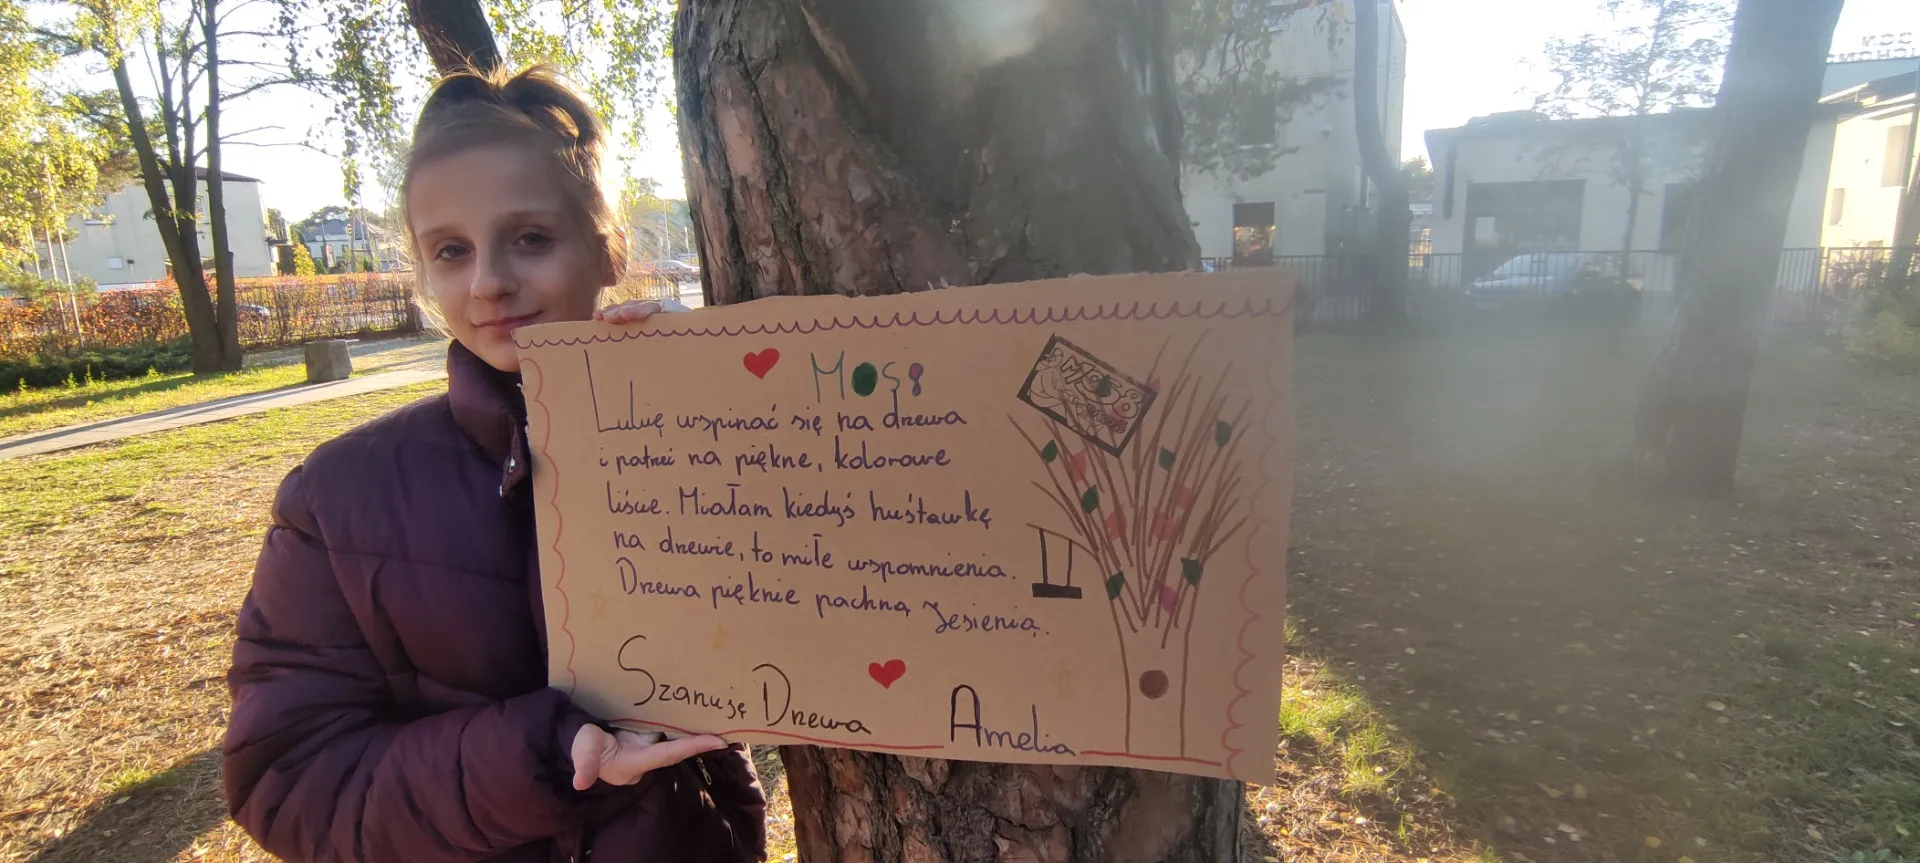 MOS8
Lubię wspinać się na drzewa
i patrzeć na piękne, kolorowe
liście. Miałam kiedyś huśtawkę
na drzewie, to miłe wspomnienia.
Drzewa pięknie pachną jesienią.
Szanuję Drzewa
Amelia
MOS8